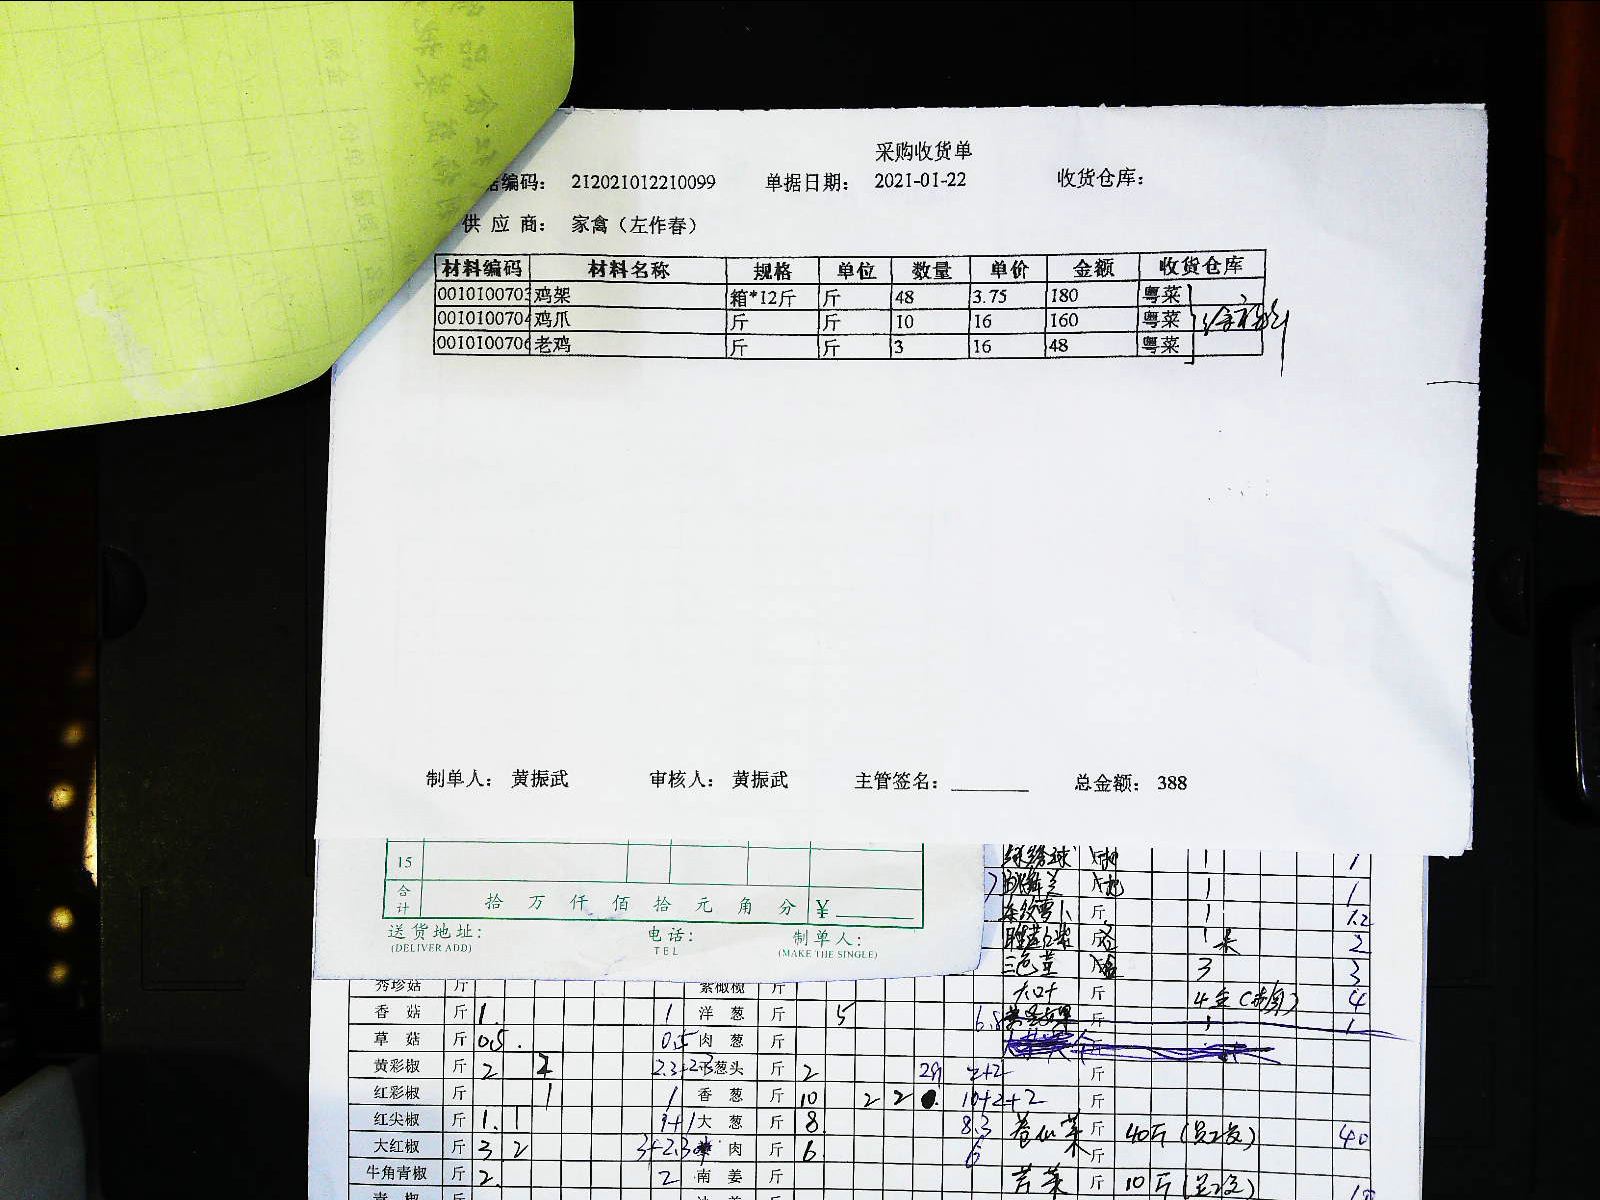 采购收货单
据编码： 212021012210099 单据日期： 2021-01-22 收货仓库：
供 应 商： 家禽（左作春）
材料编码 材料名称 规格 单位 数量 单价 金额 收货仓库
0010100703 鸡架 箱*12斤 斤 48 3.75 180 粤菜
0010100704 鸡爪 斤 斤 10 16 160 粤菜
0010100706 老鸡 斤 斤 3 16 48 粤菜
制单人： 黄振武 审核人： 黄振武 主管签名：________ 总金额： 388
15
合计 拾 万 仟 佰 拾 元 角 分 ¥
送货地址： 电话： 制单人：
(DELIVER ADD) TEL (MAKE THE SINGLE)
1 1
1 1
斤 1 1.2
1 2
三色堇 3 3
斤 4 4
斤 1 1
秀珍菇 斤 紫橄榄 斤
香 菇 斤 1. 1 洋 葱 斤 5
草 菇 斤 0.5. 0.5 肉 葱 斤
黄彩椒 斤 2 2 2.3+2.3 葱头 斤 2 2+2 斤
红彩椒 斤 1 1 香 葱 斤 10 2 2 10+2+2 斤
红尖椒 斤 1. 1 1+1 大 葱 斤 8 8.3 斤 40斤 40
大红椒 斤 3 2 3+2.3 肉 斤 6 6 斤
牛角青椒 斤 2. 2 南 姜 斤 芹菜 斤 10斤
青 椒 斤